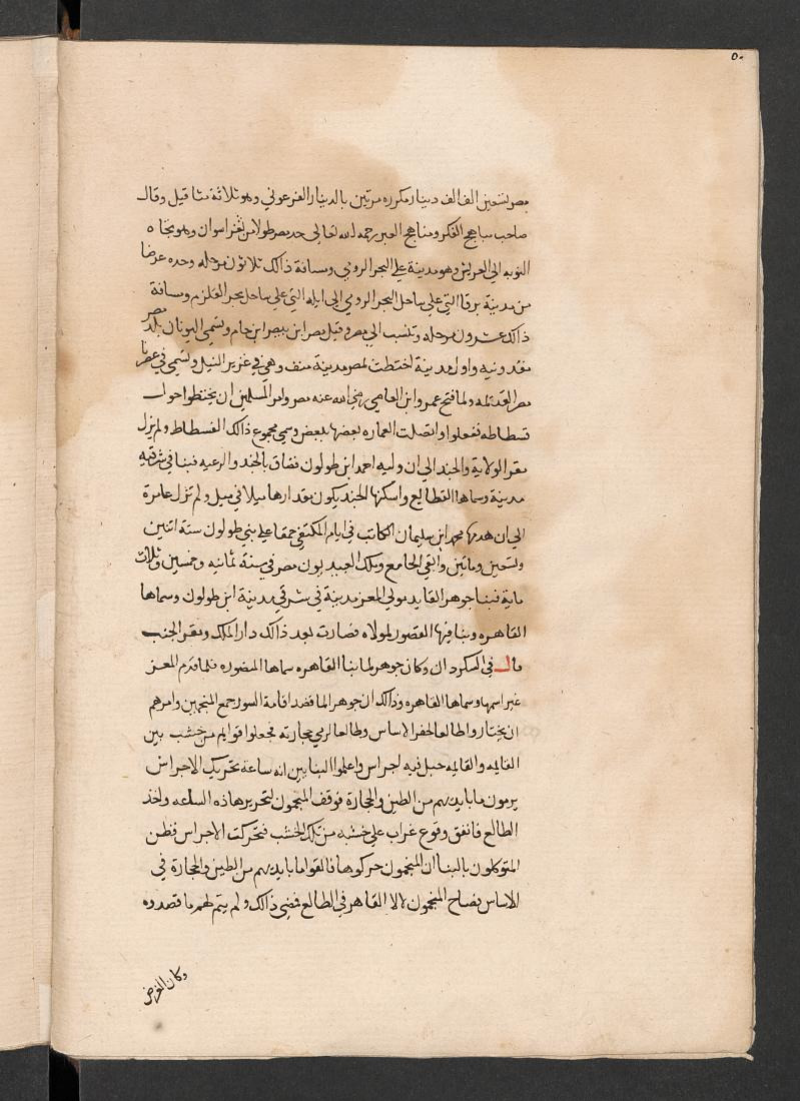 ٥٠
مصر تسعين الف الف دينار مكرره مرتين بالدينار الفرعوني وهو ثلاثة مثاقيل وقال
صاحب مباهج الفكر ومناهج العبر رحمه الله تعالى حد مصر طولا من ثغر اسوان وهو تجاه
النوبه الي العريش وهو مدينة علي البحر الرومي ومسافة ذالك ثلاثون مرحله وحده عرضا
من مدينة برقا التي علي ساحل البحر الرومي الي ايله التي علي ساحل بحر القلزم ومسافة
ذالك عشرون مرحله وتنسب الي مصر وقيل مصر ابن بيصر ابن حام وتسمي اليونان بلد مصر
مقدونيه واول مدينة اختطت لمصر مدينة منف وهي في غربي النيل وتسمي في عصرنا
مصر القديمه ولما فتح عمرو ابن العاصي رضي الله عنه مصر وامر المسلمين ان يختطوا حول
فسطاطه ففعلوا واتصلت العماره بعضها ببعض وسمي مجموع ذالك الفسطاط ولم يزل
مقر الولاية والجند الي ان وليه احمد ابن طولون فضاق بالجند والرعيه فبنا في شرقيه
مدينة وسماها القطايع واسكنها الجند يكون مقدارها ميلا في ميل ولم تزل عامرة
الي ان هدمها محمد ابن سليمان الكاتب في ايام المكتفي حمقا علي بني طولون سنة اتنين
وتسعين وماتين وابقي الجامع وملك العبيديون مصر في سنة ثمانيه وخمسين وثلاث
ماية فبنا جوهر القايد مولي المعز مدينة في شرقي مدينة ابن طولون وسماها
القاهره وبنا فيها القصور لمولاه فصارت بعد ذالك دار الملك ومقر الجند
قال في السكردان وكان جوهر لما بنا القاهره سماها المنصوره فلما قدم المعز
غير اسمها وسماها القاهره وذالك ان جوهر الما قصد اقامة السور جمع المنجمين وامرهم
ان يختاروا طالعا لحفر الاساس وطالعا لرمي حجارته فجعلوا قوايم من خشب بين
القايمه والقايمه حبل فيه اجراس واعلموا البنايين انه ساعة تحريك الاجراس
يرمون ما بايديهم من الطين والحجارة فوقف المنجمون لتحرير هاذه الساعه واخذ
الطالع فاتفق وقوع غراب علي خشبه من تلك الخشب فتحركت الاجراس فظن
المتوكلون بالبنا ان المنجمون حركوها فالقوا ما بايديهم من الطين والحجارة في
الاساس فصاح المنجمون لا لا القاهر في الطالع فمضي ذالك ولم يتم لهم ما قصدوه
وكان الغرض